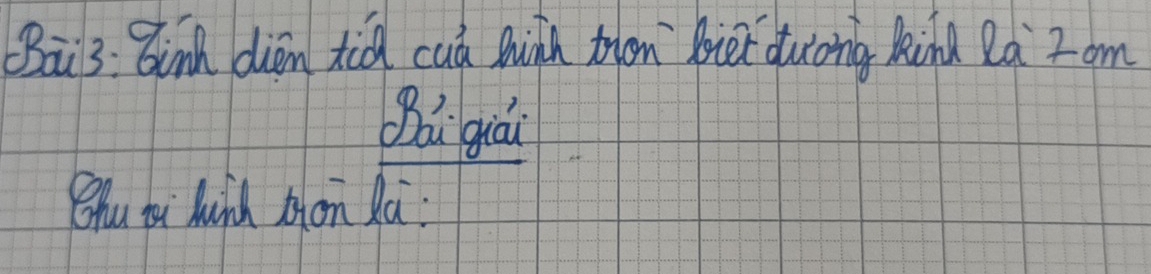 Bài 3: Tính diện tích của hình tròn biết đường kính là 7 cm
Bài giải
Chu vi hình tròn là: